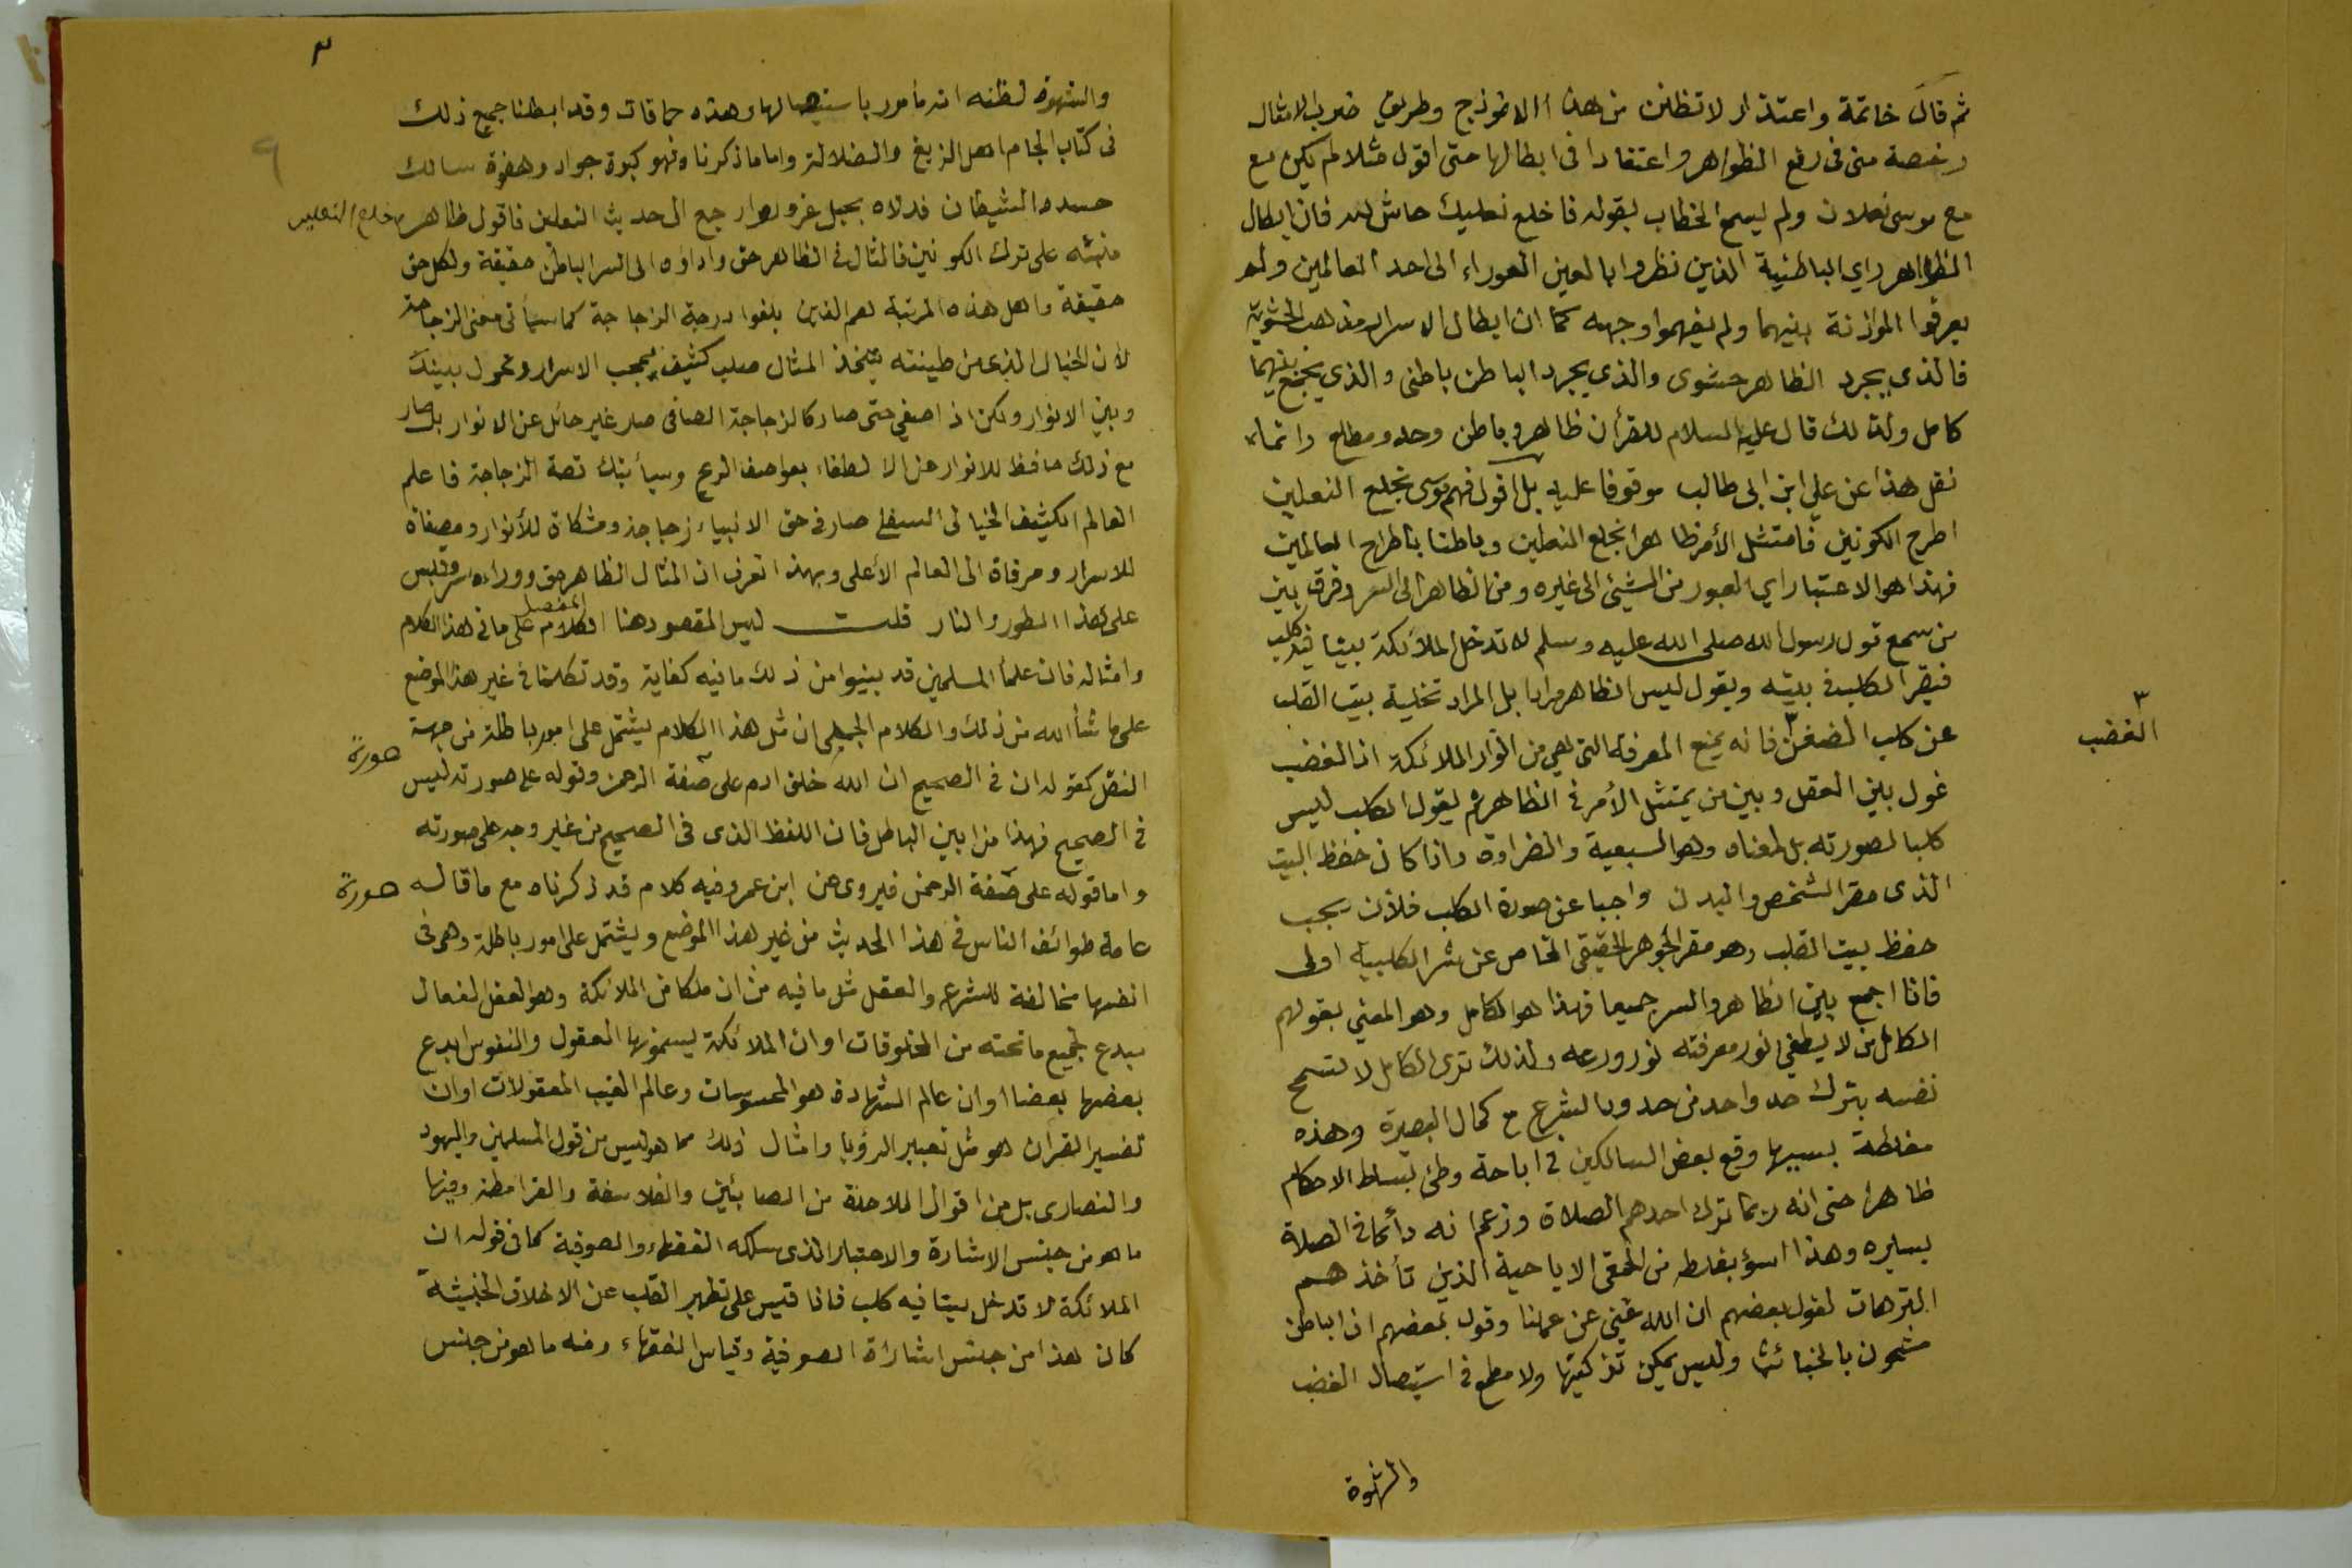 ثم قال خاتمة واعتذار لا تظنن من هذا الانموذج وطريق ضرب الامثال
رخصة منى فى رفع الظواهر واعتقادا فى ابطالها حتى اقول مثلا لم يكن مع
مع موسى نعلان ولم يسمع الخطاب بقوله فاخلع نعليك حاش لله فان ابطال
الظواهر راي الباطنية الذين نظروا بالعين العوراء الى احد العالمين ولم
يعرفوا الموازنة بينهما ولم يفهموا وجهه كما ان ابطال الاسرار مذهب الحشوية
فالذى يجرد الظاهر حشوى والذي يجرد الباطن باطنى والذي يجمع بينهما
كامل ولذلك قال عليه السلام للقرأن ظاهر وباطن وحد ومطلع وانما
نقل هذا عن علي ابن ابى طالب موقوفا عليه بل اقول فهم موسى بخلع النعلين
اطرح الكونين فامتثل الأمر ظاهرا بخلع النعلين وباطنا باطراح العالمين
فهذا هو الاعتبار اي العبور من الشيئ الى غيره ومن الظاهر الى السر وفرق بين
من سمع قول رسول الله صلى الله عليه وسلم لا تدخل الملائكة بيتا فيه كلب
فيقر الكلب فى بيته ويقول ليس الظاهر مرادا بل المراد تخلية بيت القلب
عن كلب الضغن ٣ فانه يمنع المعرفة التى هي من انوار الملائكة اذ الغضب
٣
الغضب
غول بين العقل وبين من يمتثل الأمر فى الظاهر ثم يقول الكلب ليس
كلبا لصورته بل لمعناه وهو السبعية والضراوة واذا كان حفظ البيت
الذى مقر الشخص والبدن واجبا عن صورة الكلب فلأن يجب
حفظ بيت القلب وهو مقر الجوهر الحقيقى الخاص عن شر الكلبية اولى
فانا اجمع بين الظاهر والسر جميعا فهذا هو الكامل وهو المعني بقولهم
الكامل من لا يطفي نور معرفته نور ورعه ولذلك ترى الكامل لا تسمح
نفسه بترك حد واحد من حدود الشرع مع كمال البصيرة وهذه
مغلطة بسببها وقع بعض السالكين فى اباحة وطئ بساط الاحكام
ظاهرا حتى انه ربما ترك احدهم الصلاة وزعم انه دائما فى الصلاة
بسيره وهذا اسؤ بغلطه من الحمقى الاباحية الذين تأخذهم
الترهات لقول بعضهم ان الله غني عن عملنا وقول بعضهم ان الباطن
مشحون بالخبائث وليس يمكن تزكيتها ولا مطمع فى استيصال الغضب
والشهوة
٣
والشهوة لظنه انه مأمور باستيصالها وهذه حماقات وقد ابطلنا جميع ذلك
فى كتاب الجام اهل الزيغ والضلالة واما ما ذكرنا فهو كبوة جواد وهفوة سالك
حسده الشيطان فدلاه بحبل غرور وارجع الى حديث النعلين فاقول ظاهر خلع النعلين
منبئه على ترك الكونين فالمثال فى الظاهر حق واداؤه الى السر الباطن حقيقة ولكل حق
حقيقة واهل هذه المرتبة هم الذين بلغوا درجة الزجاجة كما سيأتى معنى الزجاجة
لأن الخيال الذى من طينته يتخذ المثال صلب كثيف يحجب الاسرار وتحول بينك
وبين الانوار ولكن اذا صفي حتى صار كالزجاجة الصافى صار غير حائل عن الانوار بل صار
مع ذلك حافظ للانوار عن الانطفاء بعواصف الريح وسيأتيك قصة الزجاجة فاعلم
العالم الكثيف الخيالى السفلي صار فى حق الانبياء زجاجة ومشكاة للأنوار ومصفاة
للاسرار ومرقاة الى العالم الأعلى وبهذا تعرف ان المثال الظاهر حق ووراءه سر وقس
على هذا الطور والنار قلت ليس المقصود هنا الكلام المفصل على ما فى هذا الكلام
وامثاله فان علمأ المسلمين قد بينوا من ذلك ما فيه كفاية وقد تكلمنا فى غير هذا الموضع
على ما شأ الله من ذلك والكلام الجملى ان مثل هذا الكلام يشتمل على امور باطلة من جهة
النقل كقوله ان فى الصحيح ان الله خلق ادم على صفة الرحمن وقوله على صورته ليس
صورة
فى الصحيح فهذا من ابين الباطل فان اللفظ الذى فى الصحيح من غير وجه على صورته
واما قوله على صفة الرحمن فيروى عن ابن عمر وفيه كلام قد ذكرناه مع ما قاله
صورة
عامة طوائف الناس فى هذا الحديث من غير هذا الموضع ويشتمل على امور باطلة وهى فى
انفسها مخالفة للشرع والعقل مثل ما فيه من ان ملكا من الملائكة وهو العقل الفعال
مبدع لجميع ما تحته من المخلوقات او ان الملائكة يسمونها العقول والنفوس ابدع
بعضها بعضا او ان عالم الشهادة هو المحسوسات وعالم الغيب المعقولات او ان
تفسير القرأن هو مثل تعبير الرؤيا وامثال ذلك مما هو ليس من قول المسلمين واليهود
والنصارى بل من اقوال الملاحدة من الصابئين والفلاسفة والقرامطة وفيها
ما هو من جنس الاشارة والاعتبار الذى سلكه الفقهاء والصوفية كما فى قوله ان
الملائكة لا تدخل بيتا فيه كلب فاذا قيس على تطهير القلب عن الاخلاق الخبيثة
كان هذا من جنس اشارات الصوفية وقياس الفقهاء ومنه ما هو من جنس